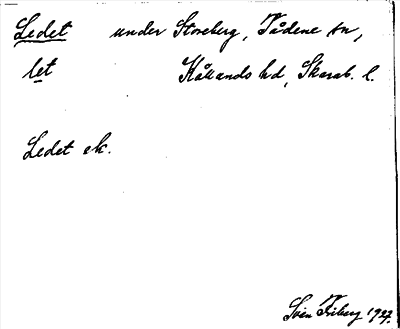 Ledet under Storeberg, Tådene sn,
let Kållands hd, Skarab. l.
Ledet ek.
Sven Friberg 1927.